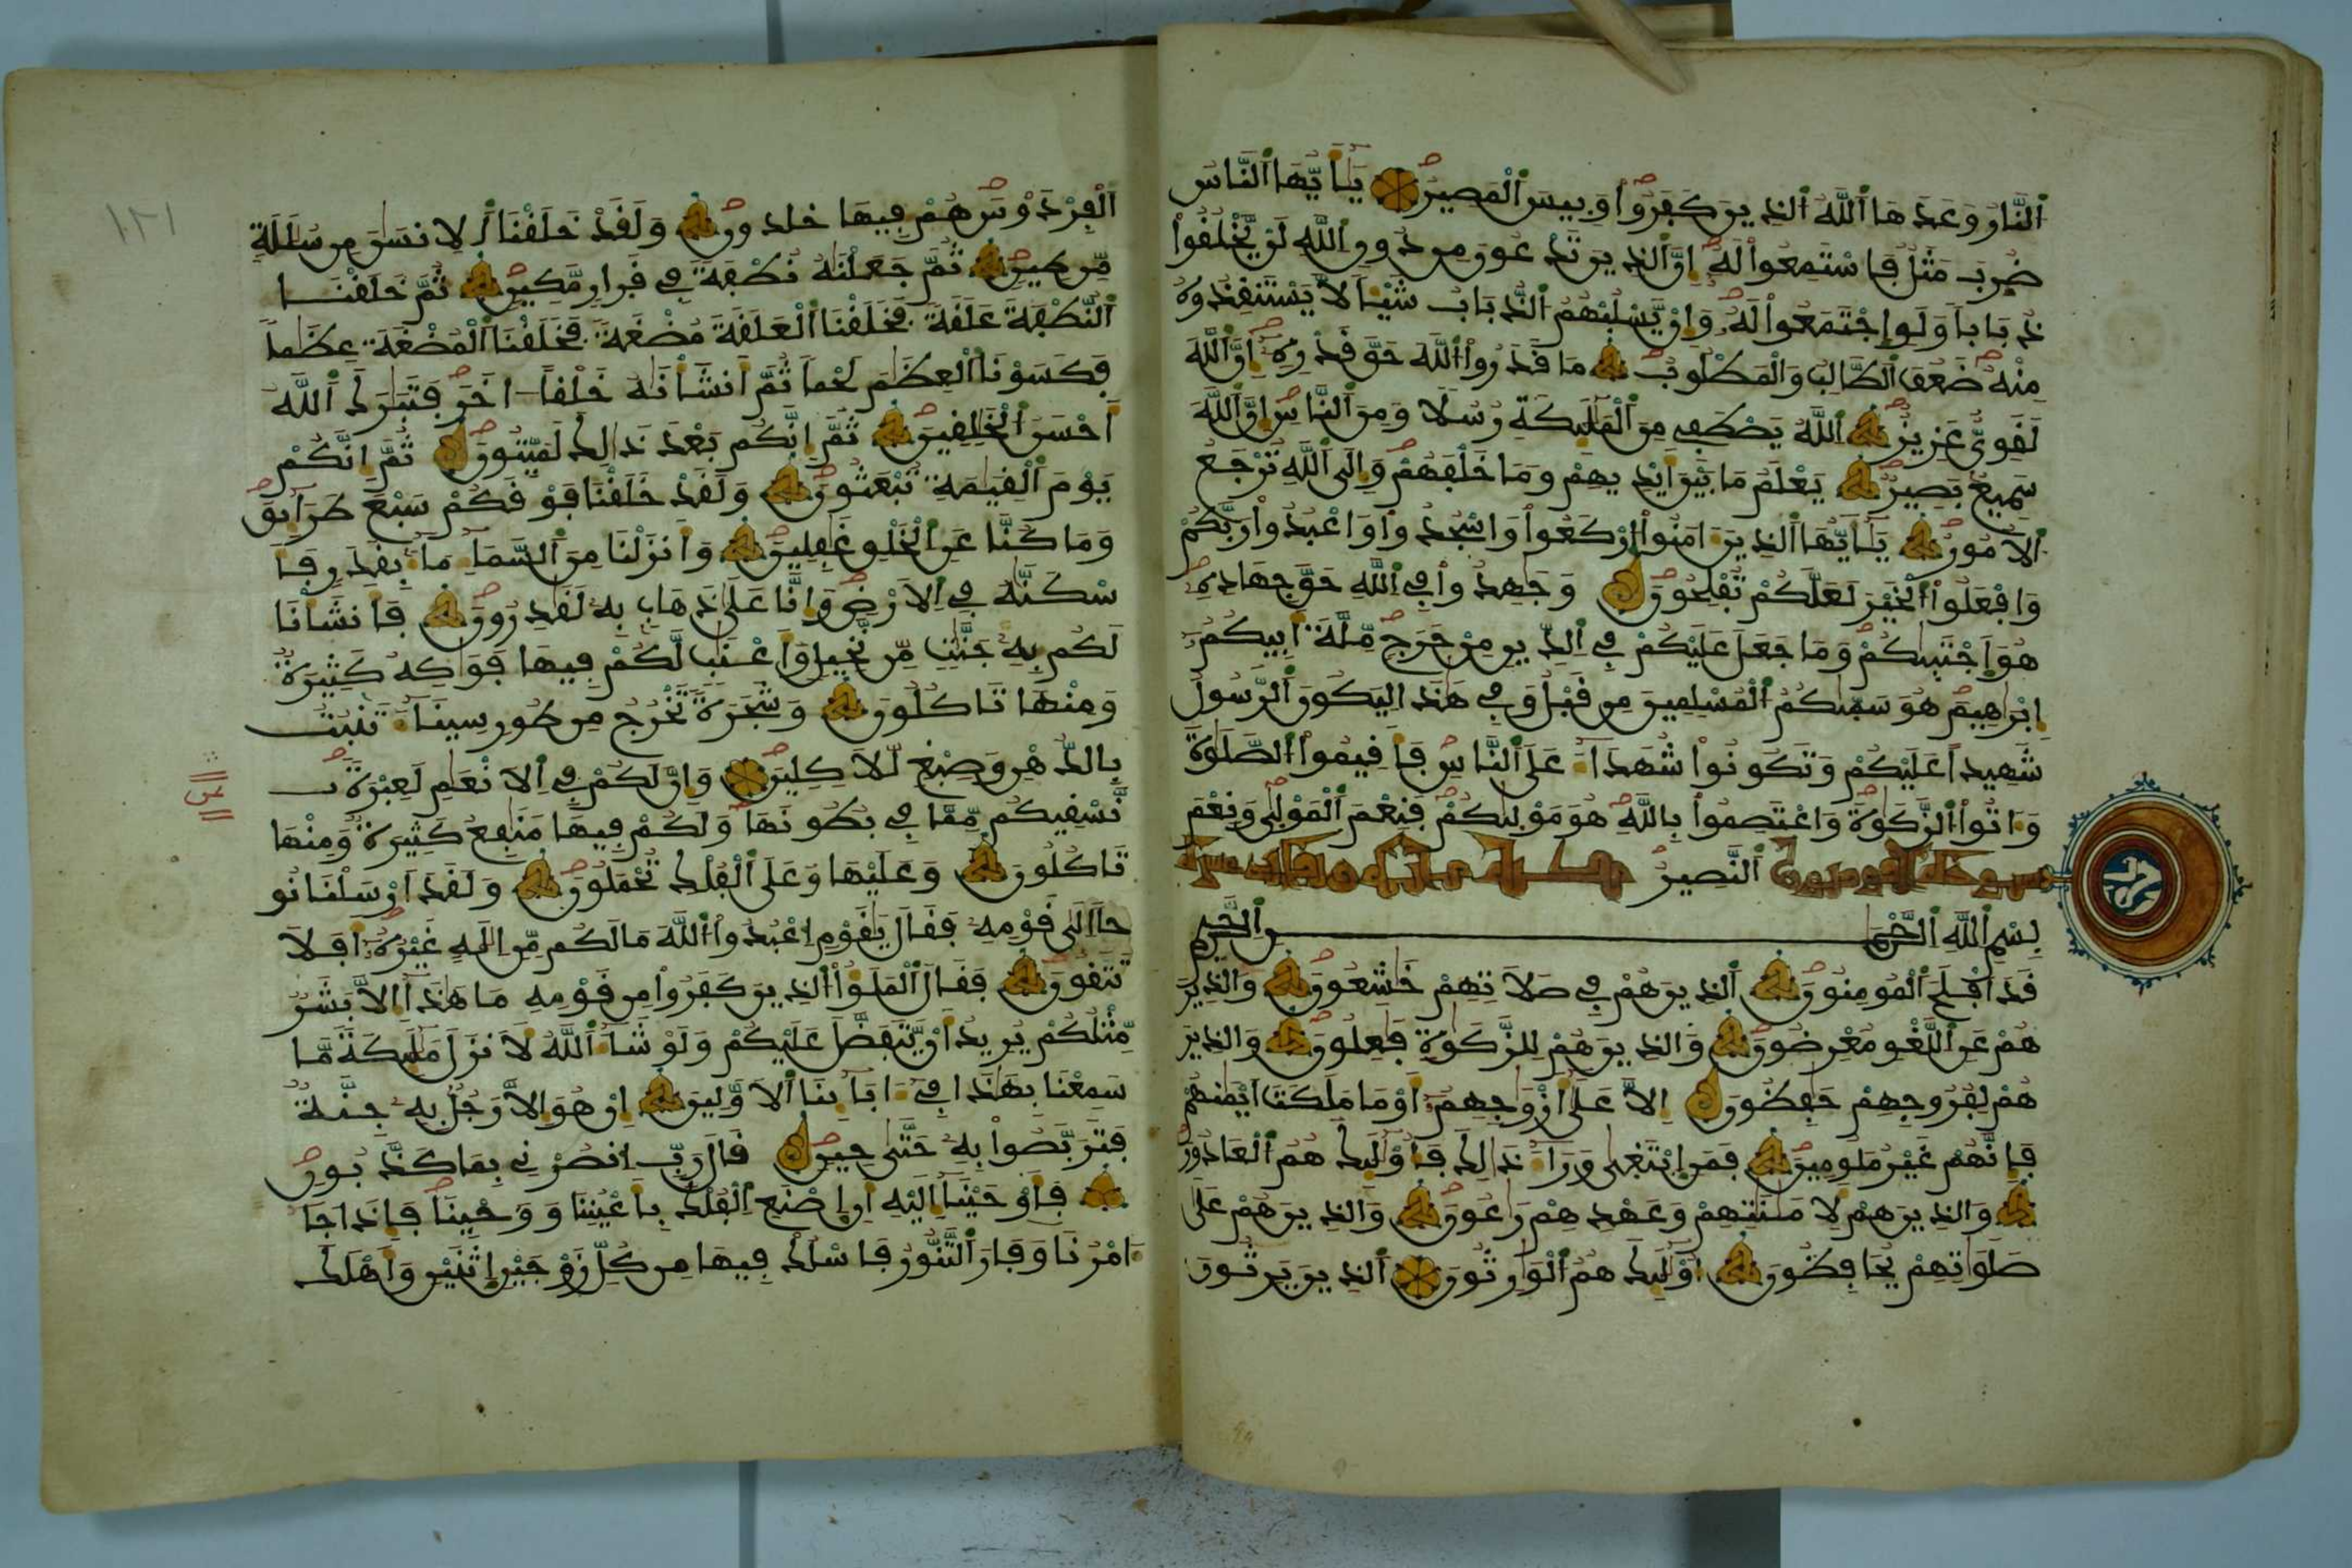 اَ۬لنَّارُ وَعَدَهَا اَ۬للَّهُ اُ۬لذِينَ كَفَرُواْ وَبِيسَ اَ۬لْمَصِيرُ يَٰأَيُّهَا اَ۬لنَّاسُ
ضُرِبَ مَثَلٌ فَاسْتَمِعُواْ لَهُ إِنَّ اَ۬لذِينَ تَدْعُونَ مِن دُونِ اِ۬للَّهِ لَنْ يَّخْلُقُواْ
ذُبَاباً وَلَوِ اِ۪جْتَمَعُواْ لَهُ وَإِنْ يَّسْلُبْهُمُ اُ۬لذُّبَابُ شَيْـٔاً لاَّ يَسْتَنقِذُوهُ
مِنْهُ ضَعُفَ اَ۬لطَّالِبُ وَالْمَطْلُوبُ مَا قَدَرُواْ اُ۬للَّهَ حَقَّ قَدْرِهِ إِنَّ اَ۬للَّهَ
لَقَوِيٌّ عَزِيزٌ اِ۬للَّهُ يَصْطَفِے مِنَ اَ۬لْمَلَٰٓئِكَةِ رُسُلاً وَمِنَ اَ۬لنَّاسِ إِنَّ اَ۬للَّهَ
سَمِيعٌ بَصِيرٌ يَعْلَمُ مَا بَيْنَ أَيْدِيهِمْ وَمَا خَلْفَهُمْ وَإِلَى اَ۬للَّهِ تُرْجَعُ
اُ۬لاُمُورُ يَٰأَيُّهَا اَ۬لذِينَ ءَامَنُواْ اُ۪رْكَعُواْ وَاسْجُدُواْ وَاعْبُدُواْ رَبَّكُمْ
وَافْعَلُواْ اُ۬لْخَيْرَ لَعَلَّكُمْ تُفْلِحُونَ وَجَٰهِدُواْ فِے اِ۬للَّهِ حَقَّ جِهَادِهِ
هُوَ اَ۪جْتَبَيٰكُمْ وَمَا جَعَلَ عَلَيْكُمْ فِے اِ۬لدِّينِ مِنْ حَرَجٍ مِّلَّةَ أَبِيكُمُ
إِبْرَٰهِيمَ هُوَ سَمّيٰكُمُ اُ۬لْمُسْلِمِينَ مِن قَبْلُ وَفِے هَٰذَا لِيَكُونَ اَ۬لرَّسُولُ
شَهِيداً عَلَيْكُمْ وَتَكُونُواْ شُهَدَآءَ عَلَى اَ۬لنَّاسِ فَأَقِيمُواْ اُ۬لصَّلَوٰةَ
وَءَاتُواْ اُ۬لزَّكَوٰةَ وَاعْتَصِمُواْ بِاللَّهِ هُوَ مَوْلَيٰكُمْ فَنِعْمَ اَ۬لْمَوْلَىٰ وَنِعْمَ
اَ۬لنَّصِيرُ
بِسْمِ اِ۬للَّهِ اِ۬لرَّحْمَٰنِ اِ۬لرَّحِيمِ
قَدَ اَفْلَحَ اَ۬لْمُومِنُونَ اَ۬لذِينَ هُمْ فِے صَلاَتِهِمْ خَٰشِعُونَ وَالذِينَ
هُمْ عَنِ اِ۬للَّغْوِ مُعْرِضُونَ وَالذِينَ هُمْ لِلزَّكَوٰةِ فَٰعِلُونَ وَالذِينَ
هُمْ لِفُرُوجِهِمْ حَٰفِظُونَ إِلاَّ عَلَىٰ أَزْوَٰجِهِمُ أَوْ مَا مَلَكَتَ اَيْمَٰنُهُمْ
فَإِنَّهُمْ غَيْرُ مَلُومِينَ فَمَنِ اِ۪بْتَغَىٰ وَرَآءَ ذَٰلِكَ فَأُوْلَٰٓئِكَ هُمُ اُ۬لْعَادُونَ
وَالذِينَ هُمْ لِأَمَٰنَٰتِهِمْ وَعَهْدِهِمْ رَٰعُونَ وَالذِينَ هُمْ عَلَىٰ
صَلَوَٰتِهِمْ يُحَافِظُونَ أُوْلَٰٓئِكَ هُمُ اُ۬لْوَٰرِثُونَ اَ۬لذِينَ يَرِثُونَ
اَ۬لْفِرْدَوْسَ هُمْ فِيهَا خَٰلِدُونَ وَلَقَدْ خَلَقْنَا اَ۬لِانسَٰنَ مِن سُلَٰلَةٍ
مِّن طِينٍ ثُمَّ جَعَلْنَٰهُ نُطْفَةً فِے قَرارٍ مَّكِينٍ ثُمَّ خَلَقْنَا
اَ۬لنُّطْفَةَ عَلَقَةً فَخَلَقْنَا اَ۬لْعَلَقَةَ مُضْغَةً فَخَلَقْنَا اَ۬لْمُضْغَةَ عِظَٰماً
فَكَسَوْنَا اَ۬لْعِظَٰمَ لَحْماً ثُمَّ أَنشَأْنَٰهُ خَلْقاً اٰخَرَ فَتَبَٰرَكَ اَ۬للَّهُ
أَحْسَنُ اُ۬لْخَٰلِقِينَ ثُمَّ إِنَّكُم بَعْدَ ذَٰلِكَ لَمَيِّتُونَ ثُمَّ إِنَّكُمْ
يَوْمَ اَ۬لْقِيَٰمَةِ تُبْعَثُونَ وَلَقَدْ خَلَقْنَا فَوْقَكُمْ سَبْعَ طَرَآئِقَ
وَمَا كُنَّا عَنِ اِ۬لْخَلْقِ غَٰفِلِينَ وَأَنزَلْنَا مِنَ اَ۬لسَّمَآءِ مَآءً بِقَدَرٍ فَأَ
سْكَنَّٰهُ فِے اِ۬لاَرْضِ وَإِنَّا عَلَىٰ ذَهَابٍ بِهِ لَقَٰدِرُونَ فَأَنشَأْنَا
لَكُم بِهِ جَنَّٰتٍ مِّن نَّخِيلٍ وَأَعْنَٰبٍ لَّكُمْ فِيهَا فَوَٰكِهُ كَثِيرَةٌ
وَمِنْهَا تَاكُلُونَ وَشَجَرَةً تَخْرُجُ مِن طُورِ سِينَآءَ تَنۢبُتُ
بِالدُّهْنِ وَصِبْغٍ لِّلاَكِلِينَ وَإِنَّ لَكُمْ فِے اِ۬لاَنْعَٰمِ لَعِبْرَةً
نَّسْقِيكُم مِّمَّا فِے بُطُونِهَا وَلَكُمْ فِيهَا مَنَٰفِعُ كَثِيرَةٌ وَمِنْهَا
تَاكُلُونَ وَعَلَيْهَا وَعَلَى اَ۬لْفُلْكِ تُحْمَلُونَ وَلَقَدَ اَرْسَلْنَا نُو
حاً اِلَىٰ قَوْمِهِ فَقَالَ يَٰقَوْمِ اِ۟عْبُدُواْ اُ۬للَّهَ مَا لَكُم مِّنِ اِلَٰهٍ غَيْرُهُ أَفَلاَ
تَتَّقُونَ فَقَالَ اَ۬لْمَلَؤُاْ اُ۬لذِينَ كَفَرُواْ مِن قَوْمِهِ مَا هَٰذَا إِلاَّ بَشَرٌ
مِّثْلُكُمْ يُرِيدُ أَنْ يَّتَفَضَّلَ عَلَيْكُمْ وَلَوْ شَآءَ اَ۬للَّهُ لَأَنزَلَ مَلَٰٓئِكَةً مَّا
سَمِعْنَا بِهَٰذَا فِے ءَابَآئِنَا اَ۬لاَوَّلِينَ إِنْ هُوَ إِلاَّ رَجُلٌ بِهِ جِنَّةٌ
فَتَرَبَّصُواْ بِهِ حَتَّىٰ حِينٍ قَالَ رَبِّ اِ۟نصُرْنِے بِمَا كَذَّبُونِ
فَأَوْحَيْنَا إِلَيْهِ أَنِ اِ۪صْنَعِ اِ۬لْفُلْكَ بِأَعْيُنِنَا وَوَحْيِنَا فَإِذَا جَا
ءَ امْرُنَا وَفَارَ اَ۬لتَّنُّورُ فَاسْلُكْ فِيهَا مِن كُلِّ زَوْجَيْنِ اِ۪ثْنَيْنِ وَأَهْلَكَ
١٢١